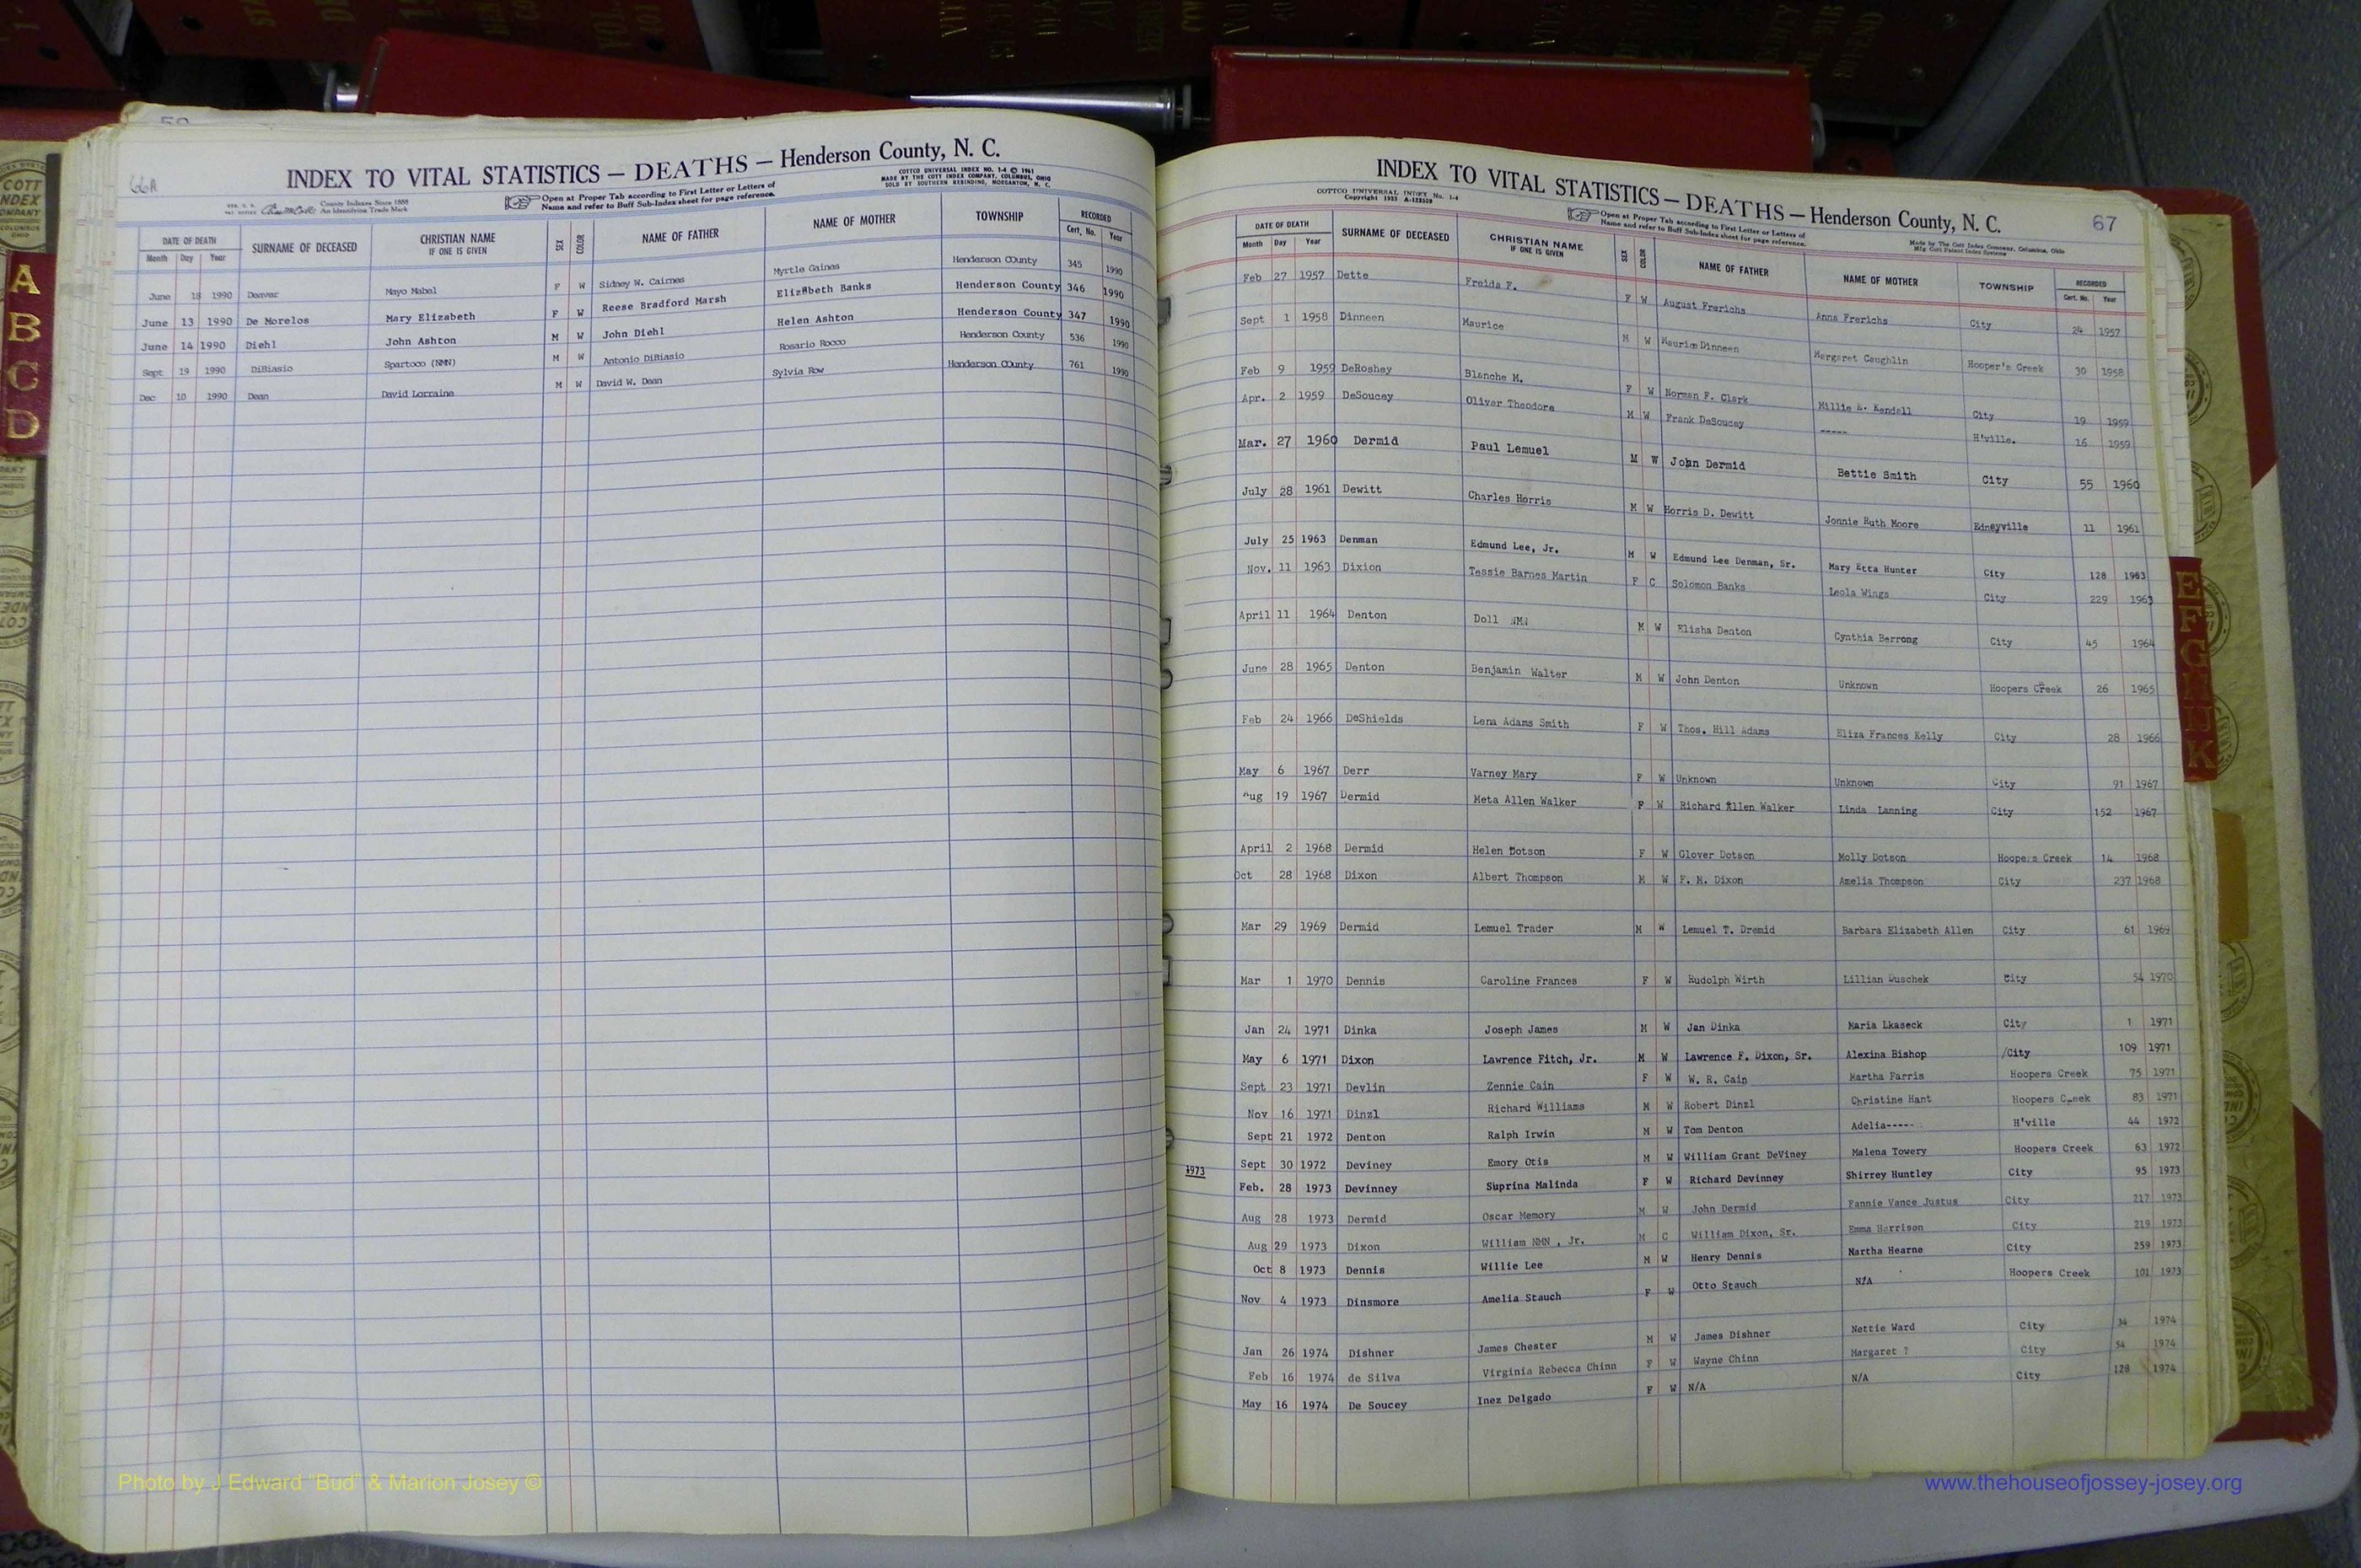 66A
INDEX TO VITAL STATISTICS — DEATHS — Henderson County, N. C.
COTTCO UNIVERSAL INDEX NO. 1-4 © 1961
MADE BY THE COTT INDEX COMPANY, COLUMBUS, OHIO
SOLD BY SOUTHERN REBINDING, MORGANTON, N. C.
County Indexes Since 1888
An Identifying Trade Mark
Open at Proper Tab according to First Letter or Letters of
Name and refer to Buff Sub-Index sheet for page reference.
DATE OF DEATH Month Day Year SURNAME OF DECEASED CHRISTIAN NAME IF ONE IS GIVEN SEX COLOR NAME OF FATHER NAME OF MOTHER TOWNSHIP RECORDED Cert. No. Year
June 18 1990 Deaver Mayo Mabel F W Sidney W. Cairnes Myrtle Gaines Henderson COunty 345 1990
June 13 1990 De Morelos Mary Elizabeth F W Reese Bradford Marsh Elizabeth Banks Henderson County 346 1990
June 14 1990 Diehl John Ashton M W John Diehl Helen Ashton Henderson County 347 1990
Sept 19 1990 DiBiasio Spartoco (NMN) M W Antonio DiBiasio Rosario Rocco Henderson County 536 1990
Dec 10 1990 Dean David Lorraine M W David W. Dean Sylvia Row Henderson COunty 761 1990
A
B
C
D
Photo by J Edward "Bud" & Marion Josey ©
INDEX TO VITAL STATISTICS — DEATHS — Henderson County, N. C.
67
COTTCO UNIVERSAL INDEX No. 1-4
Copyright 1933 A-128559
Open at Proper Tab according to First Letter or Letters of
Name and refer to Buff Sub-Index sheet for page reference.
Made by The Cott Index Company, Columbus, Ohio
Mfg. Cott Patent Index Systems
DATE OF DEATH Month Day Year SURNAME OF DECEASED CHRISTIAN NAME IF ONE IS GIVEN SEX COLOR NAME OF FATHER NAME OF MOTHER TOWNSHIP RECORDED Cert. No. Year
Feb 27 1957 Dette Freida F. F W August Frerichs Anna Frerichs City 24 1957
Sept 1 1958 Dinneen Maurice M W Maurice Dinneen Margaret Caughlin Hooper's Creek 30 1958
Feb 9 1959 DeRoshey Blanche M. F W Norman F. Clark Millie E. Kendall City 19 1959
Apr. 2 1959 DeSoucey Oliver Theodore M W Frank DeSoucey ----- H'ville. 16 1959
Mar. 27 1960 Dermid Paul Lemuel M W John Dermid Bettie Smith City 55 1960
July 28 1961 Dewitt Charles Horris M W Horris D. Dewitt Jonnie Ruth Moore Edneyville 11 1961
July 25 1963 Denman Edmund Lee, Jr. M W Edmund Lee Denman, Sr. Mary Etta Hunter City 128 1963
Nov. 11 1963 Dixion Tessie Barnes Martin F C Solomon Banks Leola Wings City 229 1963
April 11 1964 Denton Doll NMN M W Elisha Denton Cynthia Berrong City 45 1964
June 28 1965 Denton Benjamin Walter M W John Denton Unknown Hoopers Creek 26 1965
Feb 24 1966 DeShields Lena Adams Smith F W Thos. Hill Adams Eliza Frances Kelly City 28 1966
May 6 1967 Derr Varney Mary F W Unknown Unknown City 91 1967
Aug 19 1967 Dermid Meta Allen Walker F W Richard Allen Walker Linda Lanning City 152 1967
April 2 1968 Dermid Helen Dotson F W Glover Dotson Molly Dotson Hoopers Creek 14 1968
Oct 28 1968 Dixon Albert Thompson M W F. M. Dixon Amelia Thompson City 237 1968
Mar 29 1969 Dermid Lemuel Trader M W Lemuel T. Dremid Barbara Elizabeth Allen City 61 1969
Mar 1 1970 Dennis Caroline Frances F W Rudolph Wirth Lillian Duschek City 54 1970
Jan 24 1971 Dinka Joseph James M W Jan Dinka Maria Lkaseck City 1 1971
May 6 1971 Dixon Lawrence Fitch, Jr. M W Lawrence F. Dixon, Sr. Alexina Bishop /City 109 1971
Sept 23 1971 Devlin Zennie Cain F W W. R. Cain Martha Farris Hoopers Creek 75 1971
Nov 16 1971 Dinzl Richard Williams M W Robert Dinzl Christine Hant Hoopers Creek 83 1971
Sept 21 1972 Denton Ralph Irwin M W Tom Denton Adelia----- H'ville 44 1972
Sept 30 1972 Deviney Emory Otis M W William Grant DeViney Malena Towery Hoopers Creek 63 1972
1973
Feb. 28 1973 Devinney Suprina Malinda F W Richard Devinney Shirrey Huntley City 95 1973
Aug 28 1973 Dermid Oscar Memory M W John Dermid Fannie Vance Justus City 217 1973
Aug 29 1973 Dixon William NMN , Jr. M C William Dixon, Sr. Emma Harrison City 219 1973
Oct 8 1973 Dennis Willie Lee M W Henry Dennis Martha Hearne City 259 1973
Nov 4 1973 Dinsmore Amelia Stauch F W Otto Stauch N/A Hoopers Creek 101 1973
Jan 26 1974 Dishner James Chester M W James Dishner Nettie Ward City 34 1974
Feb 16 1974 de Silva Virginia Rebecca Chinn F W Wayne Chinn Margaret ? City 54 1974
May 16 1974 De Soucey Inez Delgado F W N/A N/A City 128 1974
www.thehouseofjossey-josey.org